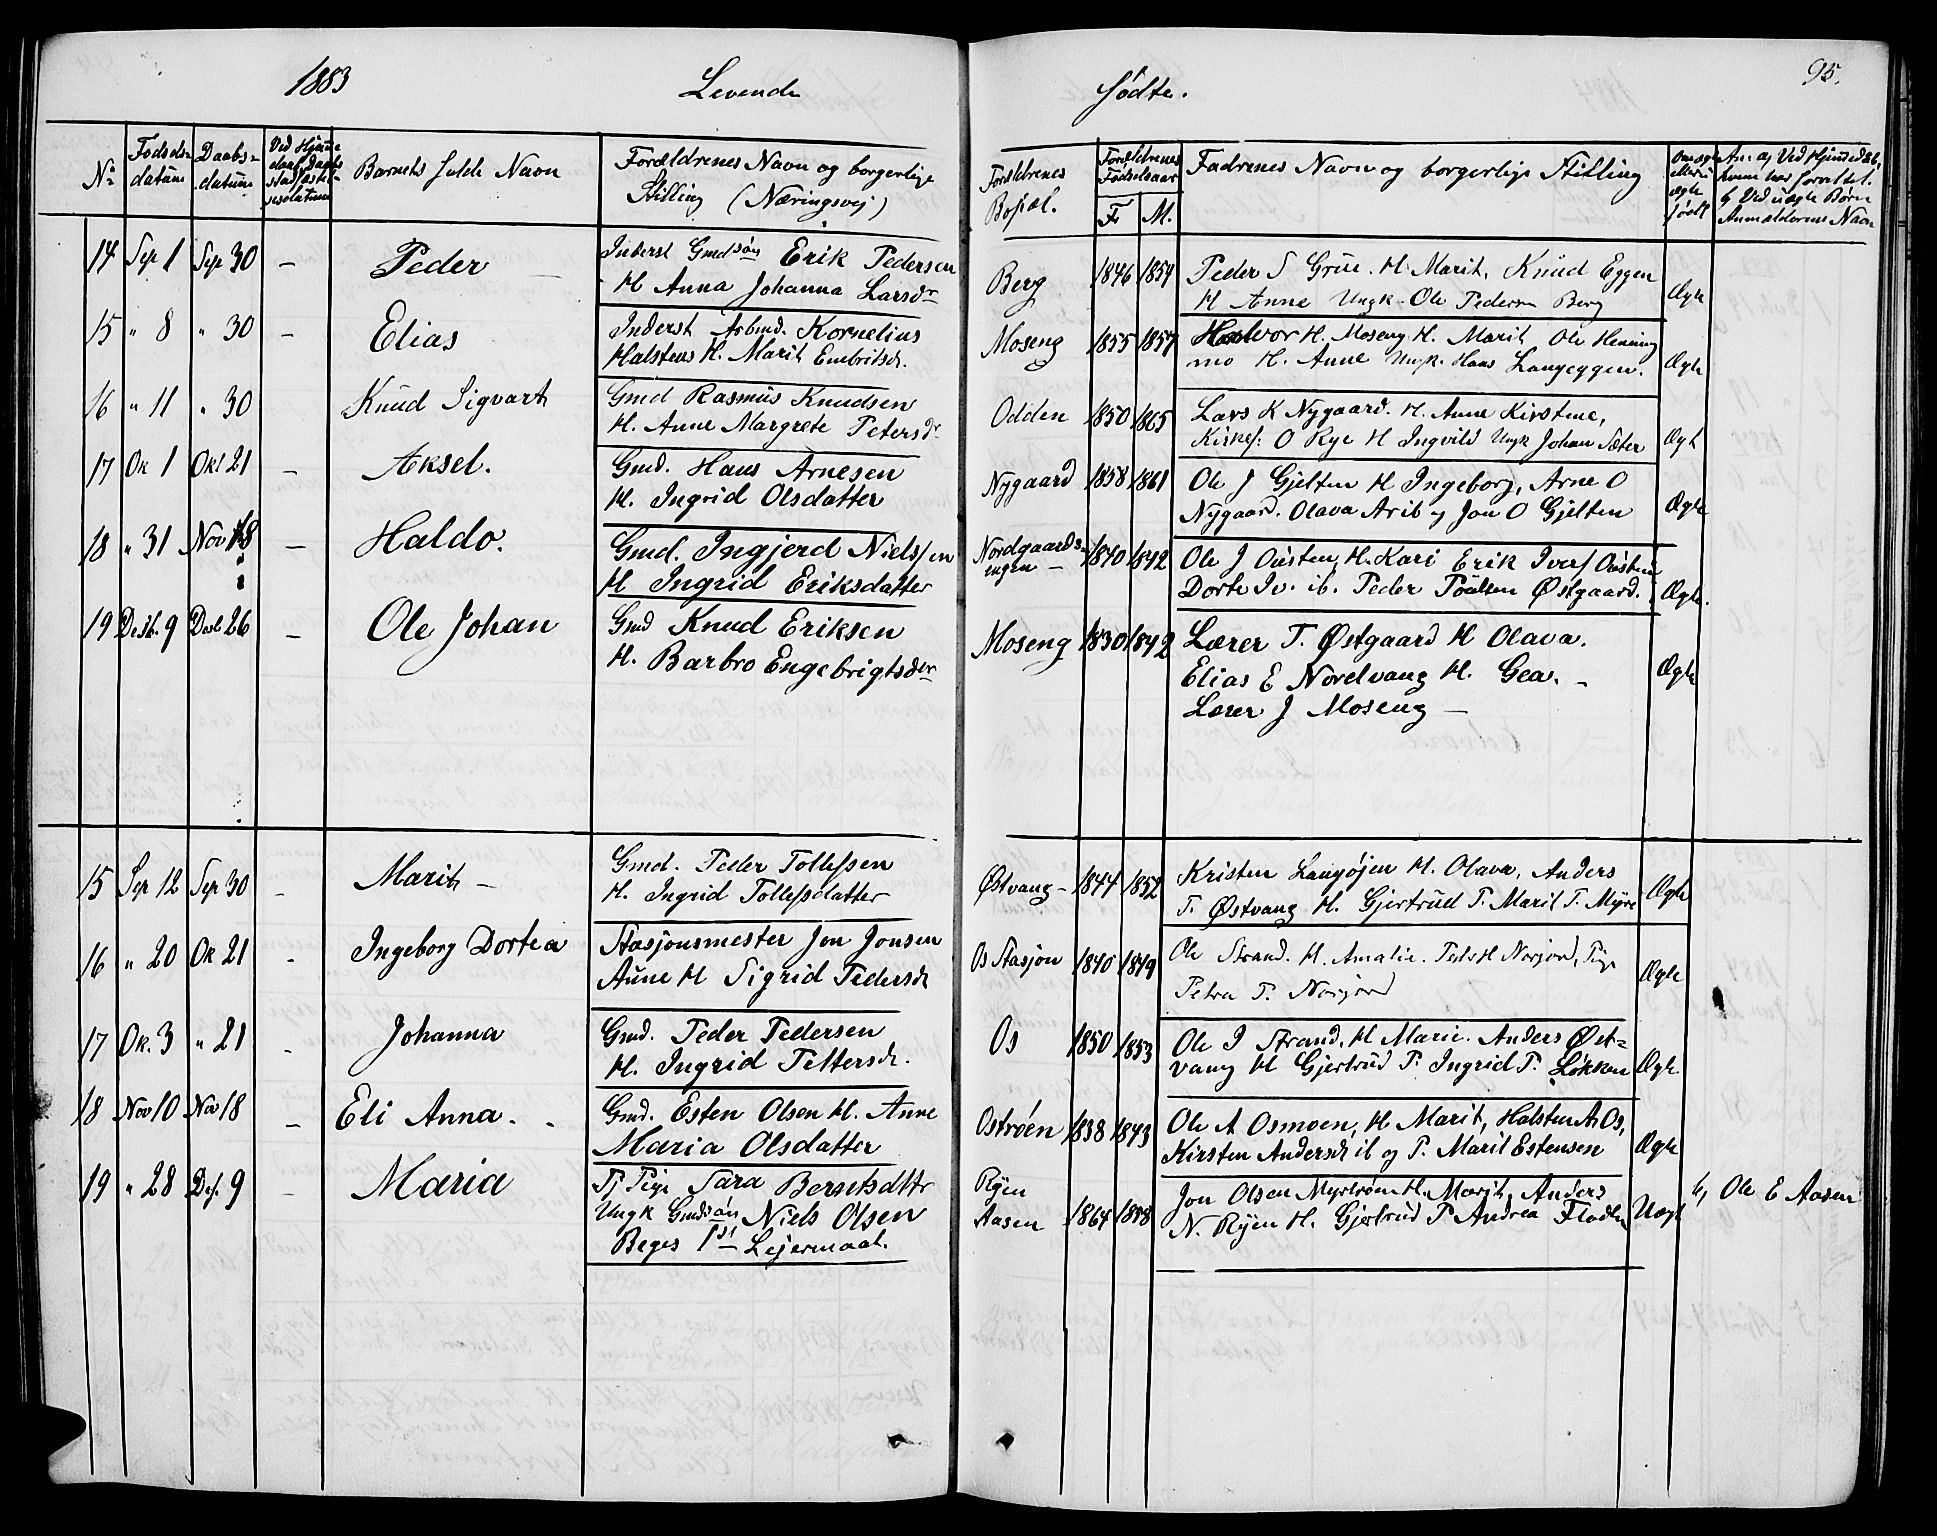 1883 Levende
No Fødsels- datum Daabs- datum Barnets fulde Navn Forældrenes Navn og borgerlige
Stilling (Næringsvej)
14 Sep 1 Sep 30 — Peder — Inderst Gmdsøn Erik Pedersen
H Anna Johanna Larsdr
15 " 8 " 30 — Elias Inderst Arbmd. Kornelius
Halstens H. Marit Embritsdr.
16 " 11 " 30 Knud Sigvart Gmd Rasmus Knudsen
H. Anne Margrete Petersdr
17 Ok 1 Okt 21 — Aksel. Gmd. Hans Arnesen
H. Ingrid Olsdatter
18 " 31 Nov 18 — Haldo. Gmd. Ingjerd Nielssen
H Ingrid Eriksdatter
19 Desb. 9 Desb 26 — Ole Johan Gmd Knud Eriksen
H. Barbro Engebrigtsdr
15 Sep 12 Sep 30 — Marit — Gmd. Peder Tollefssen
H. Ingrid Tollefsdatter
16 " 20 Ok 21 - Ingeborg Dortea Stasjonsmester Jon Jonsen
Aune H Sigrid Pedersdr
17 Ok. 3 " 21 - Johanna Gmd. Peder Pedersen
H. Ingrid Pettersdr.
18 Nov 10 Nov 18 — Eli Anna. - Gmd. Esten Olsen H. Anne
Maria Olsdatter
19 " 28 Des. 9 — Maria Tj Pige Sara Berntsdttr
Ungk Gmdsøn Niels Olsen
Beges 1st Lejermaal.
fødte. 95.
Forældrenes
Bopæl. Forældrenes
Fødselsaar
F M. Fadrenes Navn og borgerlige Stilling Om ægte
eller u
ægte
født
Berg 1846 1854 Peder S Grue. H Marit, Knud Eggen
H Anne Ungk. Ole Pedersen Berg Ægte
Moseng 1855 1857 Halvor H. Moseng H. Marit Ole Henning
mo H. Anne Ungk. Hans Langeggen. Ægte
Odden 1850 1865 Lars K Nygaard. H. Anne Kirstine,
Kirkes. O Rye H Ingvild Ungk Johan Sæter Ægt
Nygaard 1858 1861 Ole J Gjelten H Ingeborg, Arne O
Nygaard. Olava Ar ib og Jon O Gjelten Ægte
Nordgaards-
engen — 1840 1842 Ole J Ousten, H. Kari Erik Ivers Ousten
Dorte Iv. ib. Peder Poulsen Østgaard. Ægte.
Moseng 1830 1842 Lærer T. Østgaard H Olava.
Elias E Nordvang H. Gea. — Ægte
Lærer J Moseng —
Østvang - 1844 1852 Kristen Langøjen H. Olava, Anders
T. Østvang H. Gjertrud P. Marit T. Myre Ægte
Os Stasjon 1840 1849 Ole Strand. H. Amalie. Peder H Norjord, Pige
Petra P. Norjord Ægte
Os 1850 1853 Ole J Strand, H Marie. Anders Øst-
vang H Gjertrud P. Ingrid P. Løkken Ægte
Ostrøen 1838 1843 Ole A Osmoen, H Marit, Halsten A. Os,
Kirsten Andersdr ib og P. Marit Estensen Ægte
Ryen
Aasen 1864 1858 Jon Olsen Myrtrøen H. Marit, Anders
N. Ryen H. Gjertrud P Andrea Floden Uægt b, Ole E Aasen